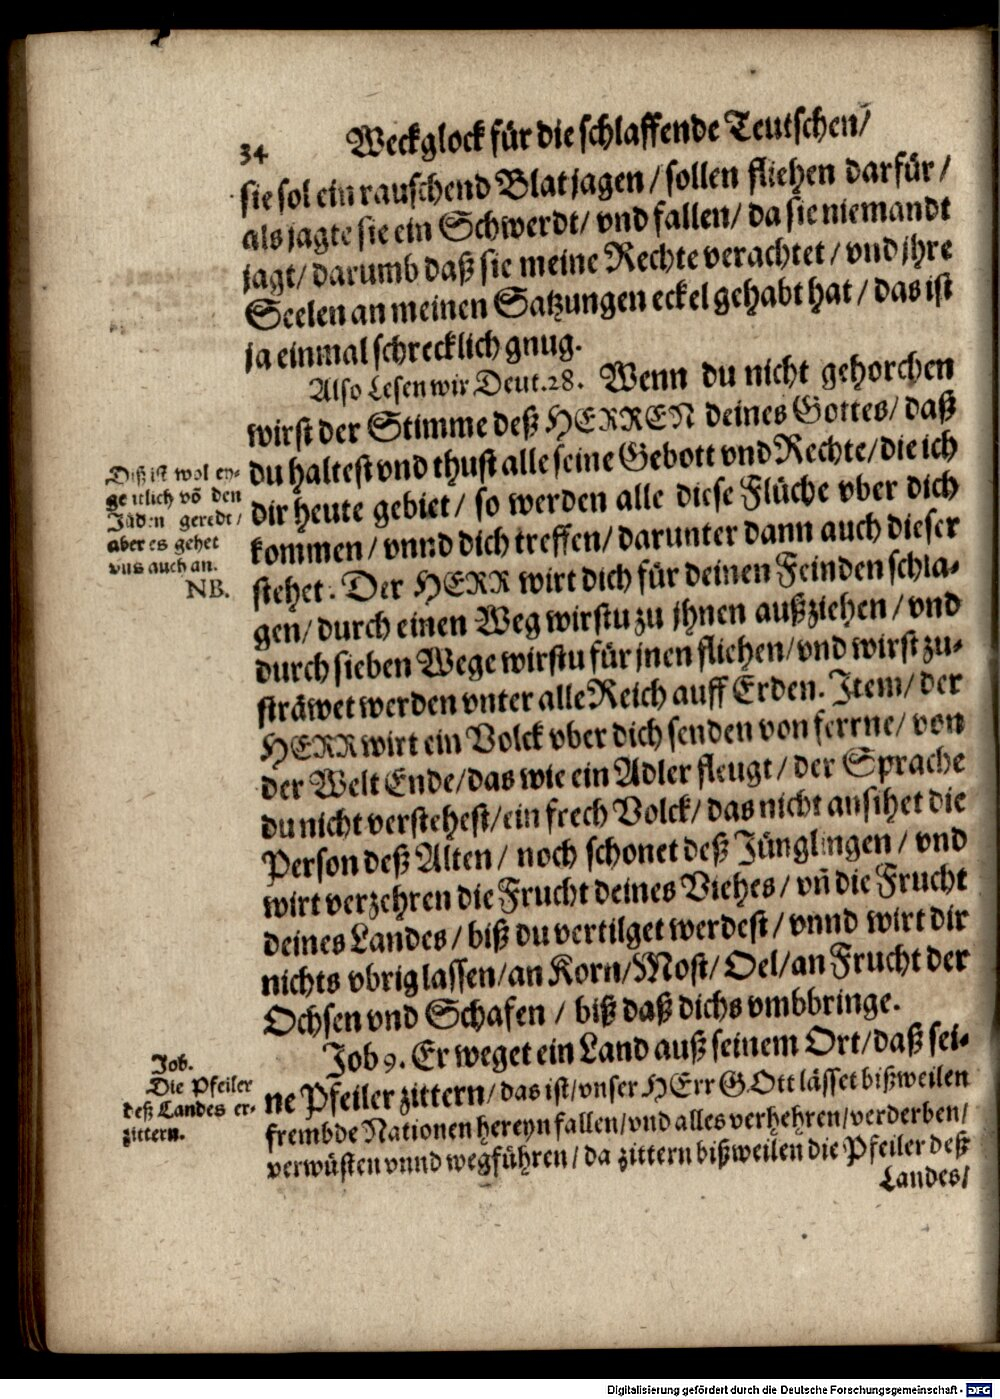 34 Weckglock für die schlaffende Teutschen/
sie sol ein rauschend Blat jagen / sollen fliehen darfür /
als jagte sie ein Schwerdt/ vnd fallen/ da sie niemandt
jagt/ darumb daß sie meine Rechte verachtet / vnd jhre
Seelen an meinen Satzungen eckel gehabt hat / das ist
ja einmal schrecklich gnug.
Also Lesen wir Deut. 28. Wenn du nicht gehorchen
wirst der Stimme deß HERREN deines Gottes/ daß
du haltest vnd thust alle seine Gebott vnd Rechte/ die ich
dir heute gebiet/ so werden alle diese Flüche vber dich
kommen / vnnd dich treffen/ darunter dann auch dieser
stehet. Der HERR wirt dich für deinen Feinden schla-
gen/ durch einen Weg wirstu zu jhnen außziehen / vnd
durch sieben Wege wirstu für jnen fliehen/ vnd wirst zu-
sträwet werden vnter alle Reich auff Erden. Item/ der
HERR wirt ein Volck vber dich senden von ferrne/ von
der Welt Ende/ das wie ein Adler fleugt/ der Sprache
du nicht verstehest/ ein frech Volck/ das nicht ansihet die
Person deß Alten/ noch schonet deß Jünglingen / vnd
wirt verzehren die Frucht deines Viehes/ vñ die Frucht
deines Landes/ biß du vertilget werdest/ vnnd wirt dir
nichts vbrig lassen/ an Korn/ Most/ Oel/ an Frucht der
Ochsen vnd Schafen / biß daß dichs vmbbringe.
Job 9. Er weget ein Land auß seinem Ort/ daß sei-
ne Pfeiler zittern/ das ist/ vnser HErr GOtt lässet bißweilen
frembde Nationen hereyn fallen/ vnd alles verhehren/ verderben/
verwüsten vnnd wegführen/ da zittern bißweilen die Pfeiler deß
Landes/
Diß ist wol ey-
gentlich võ den
Jüden geredt/
aber es gehet
vns auch an.
NB.
Job.
Die Pfeiler
deß Landes er-
zittern.
Digitalisierung gefördert durch die Deutsche Forschungsgemeinschaft - DFG